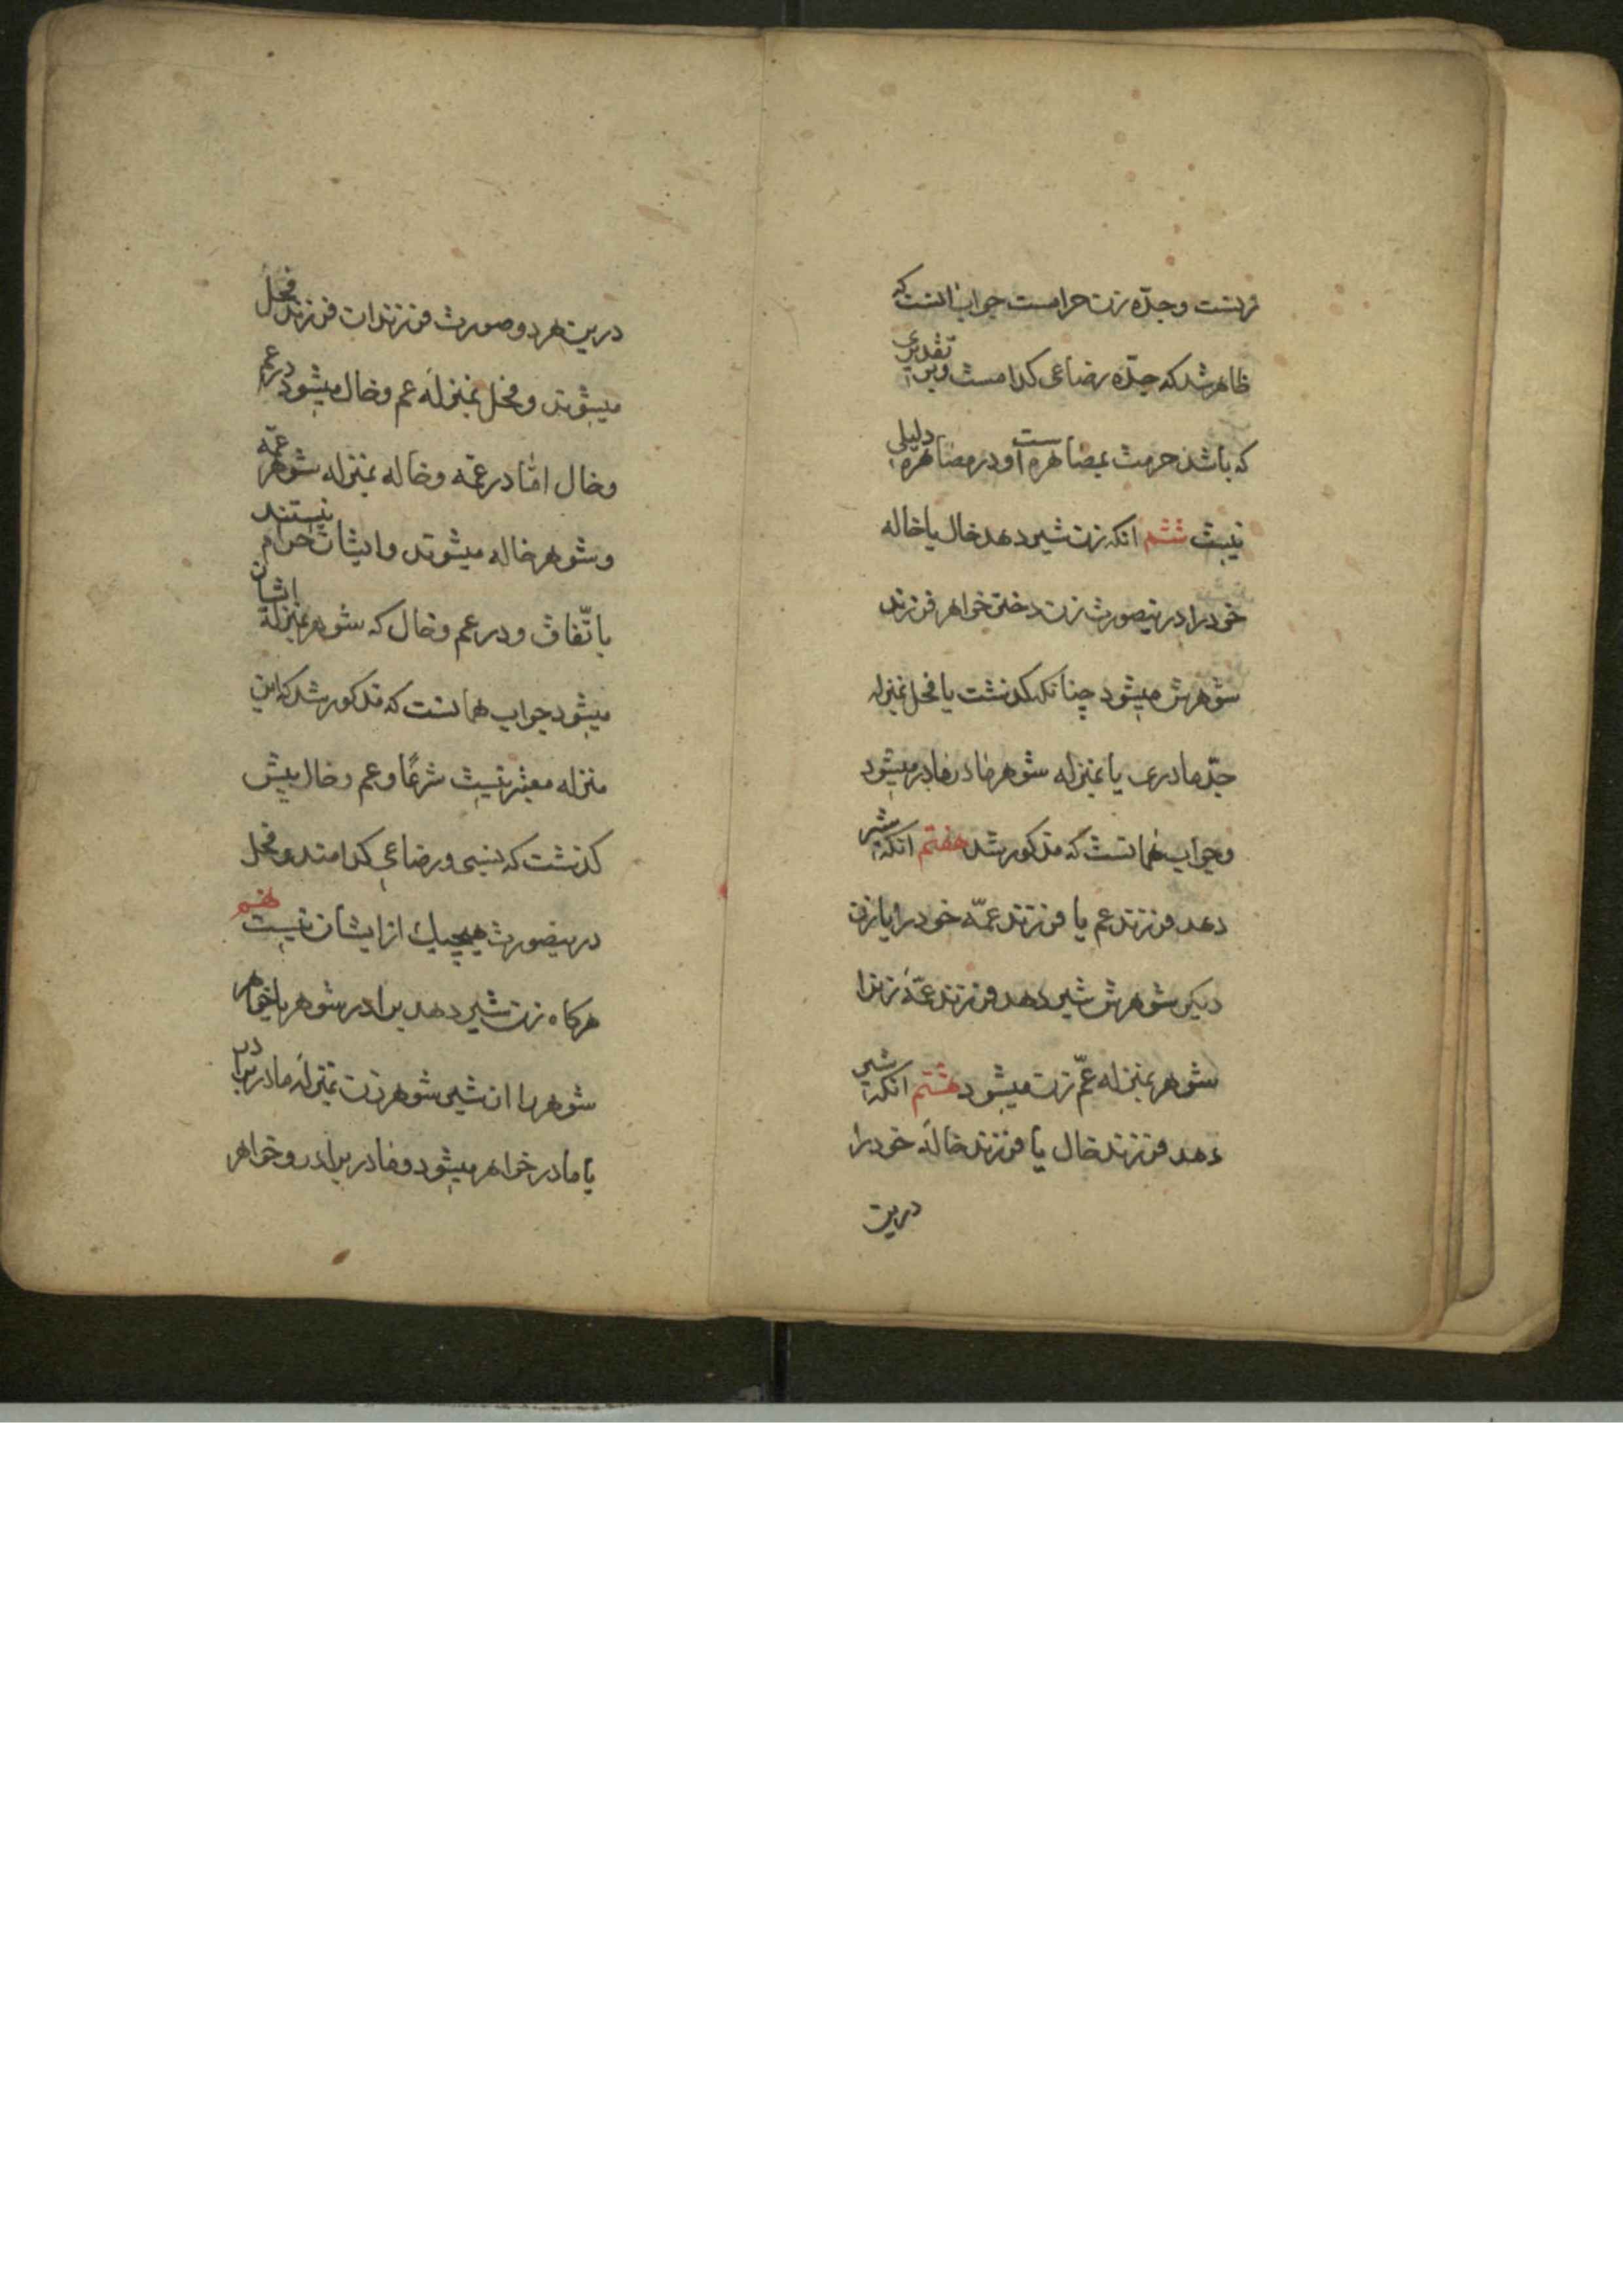 زنست و جدّه زن حرامست جواب انست که
ظاهر شد که جدّه رضاعی کدامست و بر تقدیری
که باشد حرمت بمصاهره است و در مصاهره دلیلی
نیست ششم انکه زن شیر دهد خال یا خاله
خود را درینصورت زن دختر خواهر فرزند
شوهرش میشود چنانکه کذشت یا فحل بمنزله
جدّ مادری یا بمنزله شوهر مادر مادر میشود
و جواب همانست که مذکور شد هفتم انکه شیر
دهد فرزند عم یا فرزند عمّه خود را یا زن
دیکر شوهرش شیر دهد فرزند عمّه زنرا
شوهر بمنزله عمّ زن میشود هشتم انکه شیر
دهد فرزند خال یا فرزند خاله خود را
درین
درین هر دو صورت فرزندان فرزند فحل
میشوند و فحل بمنزله عم و خال میشود در عم
و خال امّا در عمّه و خاله بمنزله شوهر عمّه
و شوهر خاله میشوند و ایشان حرام نیستند
باتّفاق و در عم و خال که شوهر بمنزله ایشان
میشود جواب همانست که مذکور شد که این
منزله معتبر نیست شرعًا و عم و خال پیش
کذشت که نسبی و رضاعی کدامند و فحل
درینصورت هیچیک از ایشان نیست نهم
هرکاه زن شیر دهد برادر شوهر یا خواهر
شوهر را ان شیر شوهر زن بمنزله مادر برادر
یا مادر خواهر میشود و مادر برادر و خواهر